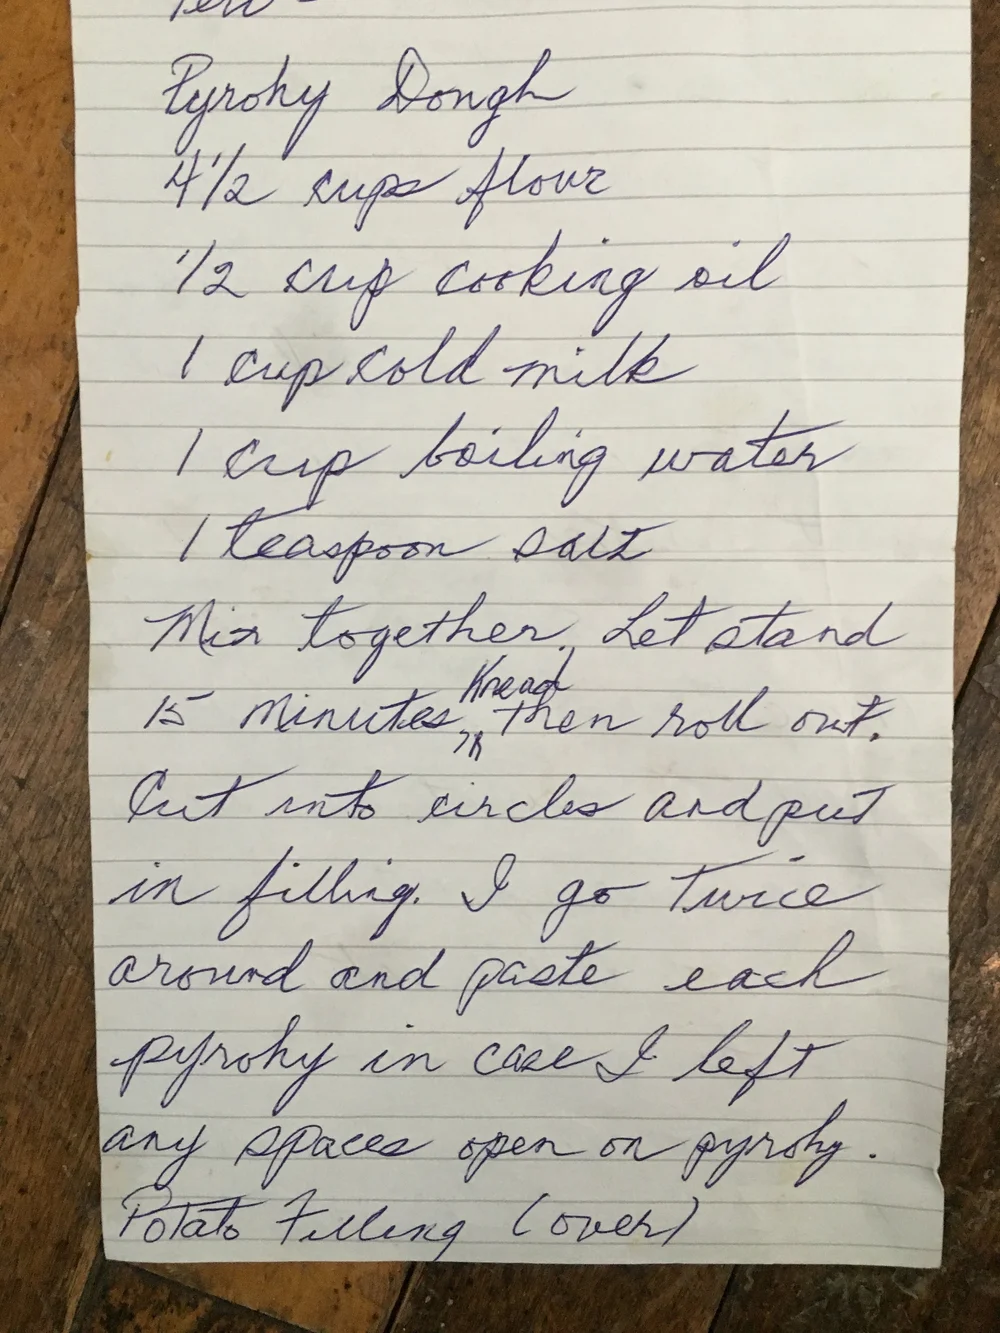 Pyrohy Dough
4 1/2 cups flour
1/2 cup cooking oil
1 cup cold milk
1 cup boiling water
1 teaspoon salt
Mix together. Let stand
Knead
15 minutes, then roll out.
Cut into circles and put
in filling. I go twice
around and paste each
pyrohy in case I left
any spaces open on pyrohy.
Potato Filling (over)